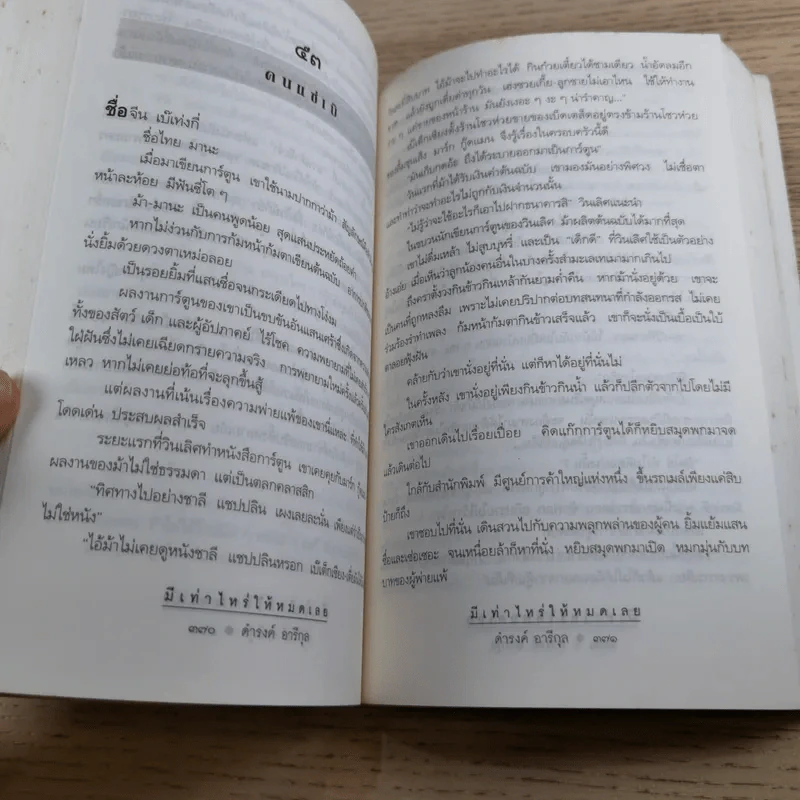 ๕๓
คนแซ่เบ๊
ชื่อจีน เบ๊เท่งกี่
ชื่อไทย มานะ
เมื่อมาเขียนการ์ตูน เขาใช้นามปากกาว่าม้า
หน้าละห้อย มีฟันซี่โต ๆ
ม้า-มานะ เป็นคนพูดน้อย สุดแสนประหยัดถ้อยคำ
หากไม่ง่วนกับการก้มหน้าก้มตาเขียนต้นฉบับ
นั่งยิ้มด้วยดวงตาเหม่อลอย
เป็นรอยยิ้มที่แสนซื่อจนกระเดียดไปทางโง่งม
ผลงานการ์ตูนของเขาเป็นขบขันอันแสนเศร้า
ทั้งของสัตว์ เด็ก และผู้อัปภาคย์ ไร้โชค ความพยายามที่ไม่เคย
ใฝ่ฝันซึ่งไม่เคยเฉียดกรายความจริง การพยายามใหม่ครั้งแล้ว
เหลว หากไม่เคยย่อท้อที่จะลุกขึ้นสู้
แต่ผลงานที่เน้นเรื่องความพ่ายแพ้ของเขานี่แหละ
โดดเด่น ประสบผลสำเร็จ
ระยะแรกที่วินเลิศทำหนังสือการ์ตูน เขาเคยคุยกับมาร์ก
ผลงานของม้าไม่ใช่ธรรมดา แต่เป็นตลกคลาสสิก
"ทิศทางไปอย่างชาลี แชปปลิน เผงเลยละนั่น เพียงแต่ว่า
ไม่ใช่หนัง"
"ไอ้ม้าไม่เคยดูหนังชาลี แชปปลินหรอก เบ๊เต็กเซียง-เตี่ย
มีเท่าไหร่ให้หมดเลย
๓๗๐ ● ดำรงค์ อารีกุล
วันละสิบบาท ไอ้ม้าจะไปทำอะไรได้ กินก๋วยเตี๋ยวได้ชามเดียว น้ำอัดลมอีก
แล้วยังถูกเตี่ยด่าทุกวัน เฮงซวยเกี้ย-ลูกชายไม่เอาไหน ใช้ให้ทำงาน
ๆ แต่ขายของหน้าร้าน มันยังเงอะ ๆ งะ ๆ น่ารำคาญ..."
เบ๊เต็กเซียงตั้งร้านโชวห่วยขายของเบ็ดเตล็ดอยู่ตรงข้ามร้านโชวห่วย
มาร์ก กู๊ดแมน จึงรู้เรื่องในครอบครัวนี้ดี
"มันเก็บกดละ ถึงได้ระบายออกมาเป็นการ์ตูน"
วันแรกที่ม้าได้รับเงินค่าต้นฉบับ เขามองมันอย่างพิศวง ไม่เชื่อตา
และทำท่าว่าจะทำอะไรไม่ถูกกับเงินจำนวนนั้น
"ไม่รู้ว่าจะใช้อะไรก็เอาไปฝากธนาคารสิ" วินเลิศแนะนำ
ในขบวนนักเขียนการ์ตูนของวินเลิศ ม้าผลิตต้นฉบับได้มากที่สุด
เขาไม่ดื่มเหล้า ไม่สูบบุหรี่ และเป็น "เด็กดี" ที่วินเลิศใช้เป็นตัวอย่าง
อ้างเอ่ย เมื่อเห็นว่าลูกน้องคนอื่นในบางครั้งสำมะเลเทเมามากเกินไป
ถึงคราตั้งวงกินข้าวกินเหล้ากันยามค่ำคืน หากม้านั่งอยู่ด้วย เขาจะ
เป็นคนที่ถูกหลงลืม เพราะไม่เคยปริปากต่อบทสนทนาที่กำลังออกรส ไม่เคย
ร่วมร้องรำทำเพลง ก้มหน้าก้มตากินข้าวเสร็จแล้ว เขาก็จะนั่งเป็นเบื้อเป็นใบ้
ตาลอยฟุ้งฝัน
คล้ายกับว่าเขานั่งอยู่ที่นั่น แต่ก็หาได้อยู่ที่นั่นไม่
ในครั้งหลัง เขานั่งอยู่เพียงกินข้าวกินน้ำ แล้วก็ปลีกตัวจากไปโดยไม่มี
ใครสังเกตเห็น
เขาออกเดินไปเรื่อยเปื่อย คิดแก๊กการ์ตูนได้ก็หยิบสมุดพกมาจด
แล้วเดินต่อไป
ใกล้กับสำนักพิมพ์ มีศูนย์การค้าใหญ่แห่งหนึ่ง ขึ้นรถเมล์เพียงแค่สิบ
ป้ายก็ถึง
เขาชอบไปที่นั่น เดินสวนไปกับความพลุกพล่านของผู้คน ยิ้มแย้มแสน
ซื่อและเซ่อเซอะ จนเหนื่อยล้าก็หาที่นั่ง หยิบสมุดพกมาเปิด หมกมุ่นกับบท
บาทของผู้พ่ายแพ้
มีเท่าไหร่ให้หมดเลย
ดำรงค์ อารีกุล ● ๓๗๑